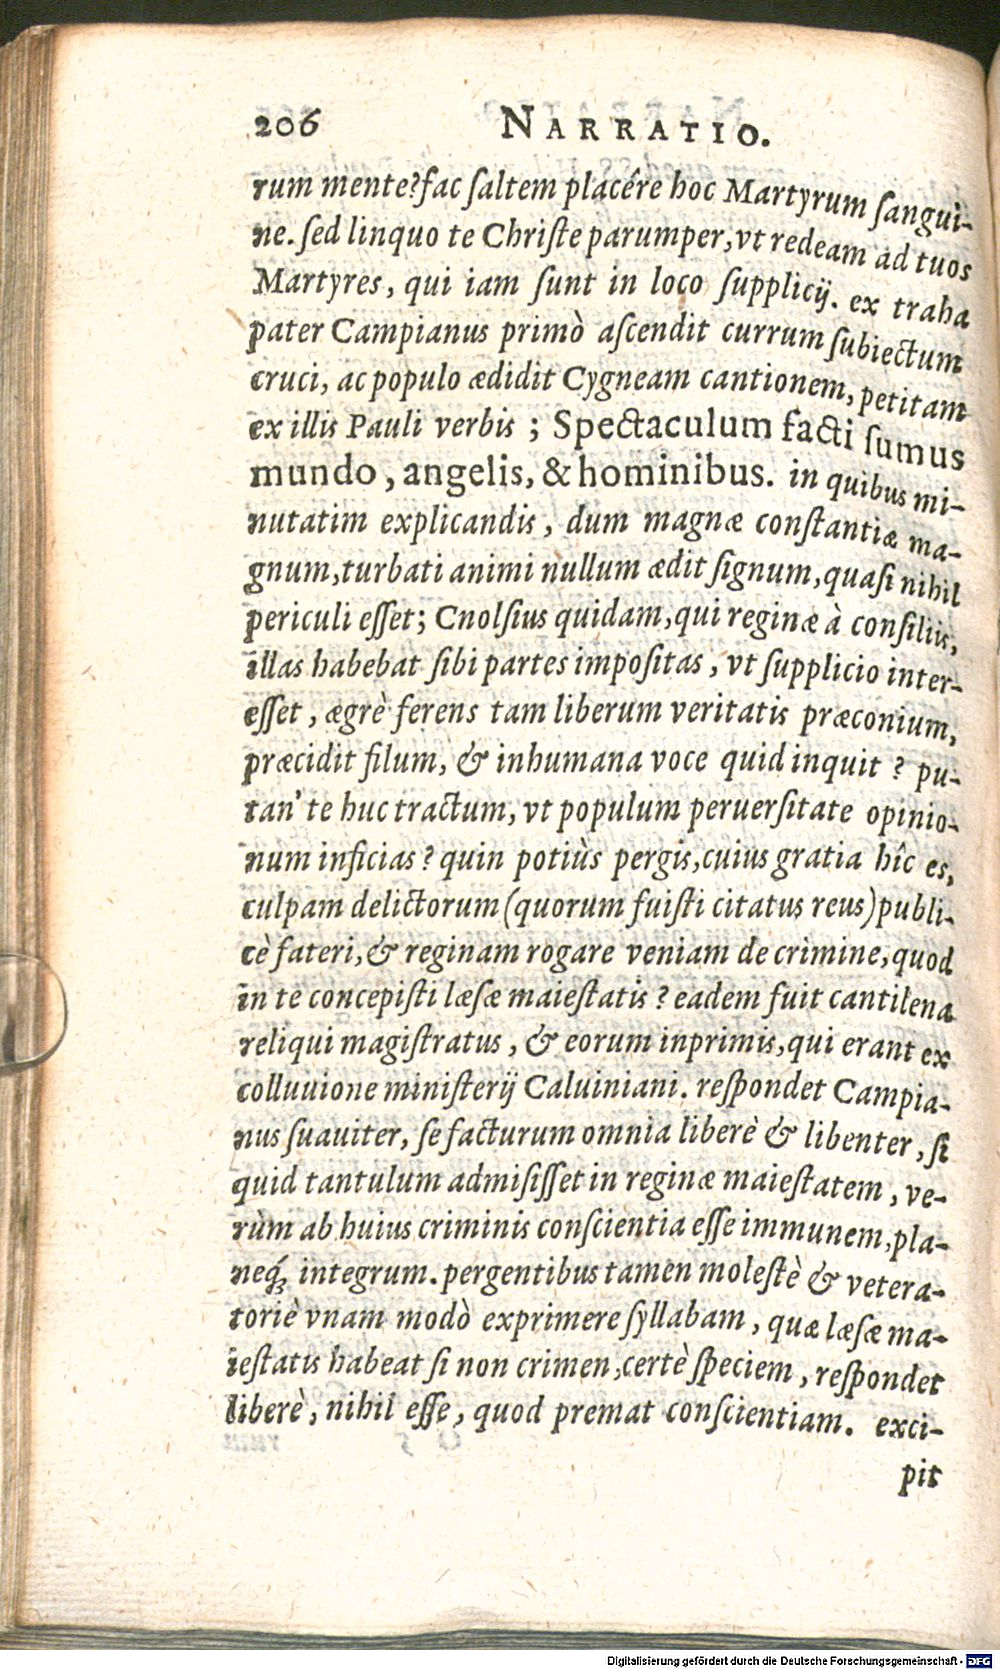 206 NARRATIO.
rum mente? fac ſaltem placére hoc Martyrum ſangui-
ne. ſed linquo te Chriſte parumper, vt redeam ad tuos
Martyres, qui iam ſunt in loco ſupplicij. ex traha
pater Campianus primò aſcendit currum ſubiectum
cruci, ac populo ædidit Cygneam cantionem, petitam
ex illis Pauli verbis ; Spectaculum facti ſumus
mundo, angelis, & hominibus. in quibus mi-
nutatim explicandis, dum magnæ conſtantiæ ma-
gnum, turbati animi nullum ædit ſignum, quaſi nihil
periculi eſſet; Cnolſius quidam, qui reginæ à conſiliis,
illas habebat ſibi partes impoſitas, vt ſupplicio inter-
eſſet, ægrè ferens tam liberum veritatis præconium,
præcidit filum, & inhumana voce quid inquit ? pu-
tan' te huc tractum, vt populum peruerſitate opinio-
num inficias? quin potiùs pergis, cuius gratia hîc es,
culpam delictorum (quorum fuiſti citatus reus) publi-
cè fateri, & reginam rogare veniam de crimine, quod
in te concepiſti læſæ maieſtatis? eadem fuit cantilena
reliqui magiſtratus, & eorum inprimis, qui erant ex
colluuione miniſterij Caluiniani. reſpondet Campia-
nus ſuauiter, ſe facturum omnia liberè & libenter, ſi
quid tantulum admiſiſſet in reginæ maieſtatem, ve-
rùm ab huius criminis conſcientia eſſe immunem, pla-
neq́; integrum. pergentibus tamen moleſtè & vetera-
toriè vnam modò exprimere ſyllabam, quæ læſæ ma-
ieſtatis habeat ſi non crimen, certè ſpeciem, reſpondet
liberè, nihil eſſe, quod premat conſcientiam. exci-
pit
Digitalisierung gefördert durch die Deutsche Forschungsgemeinschaft - DFG